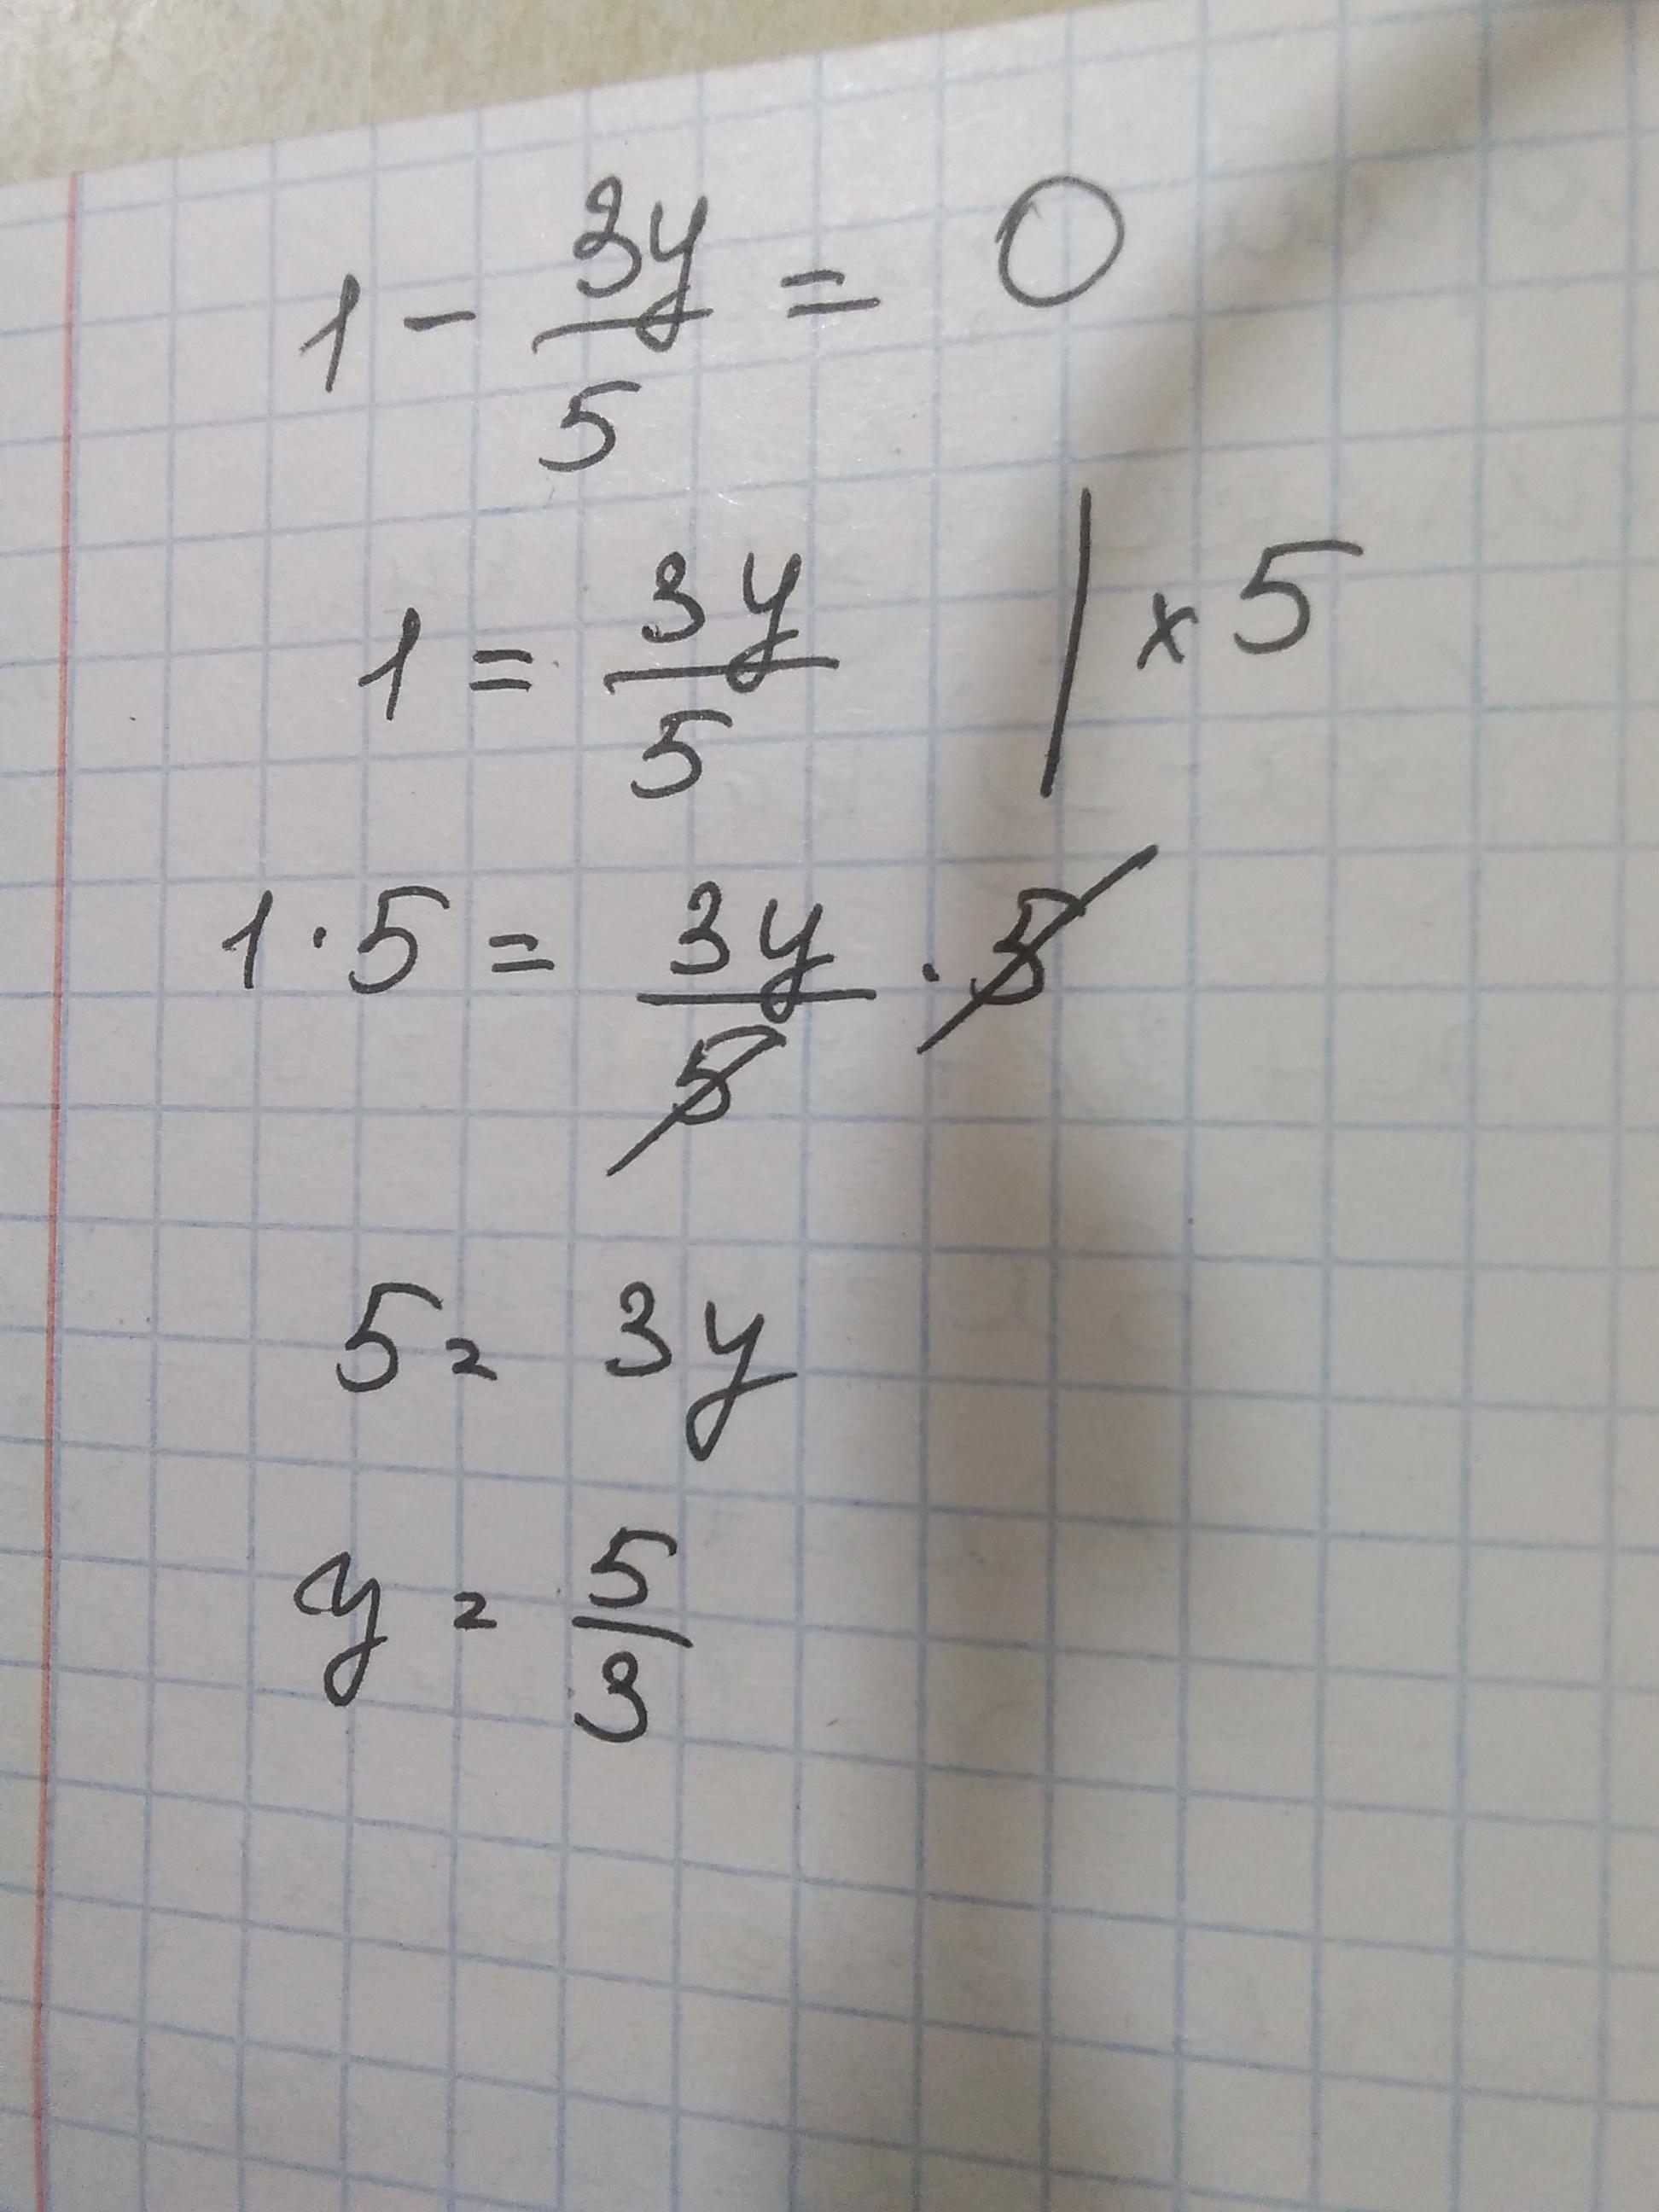 1 - 3y/5 = 0
1 = 3y/5 | x 5
1 · 5 = 3y/5 · 5
5 = 3y
y = 5/3